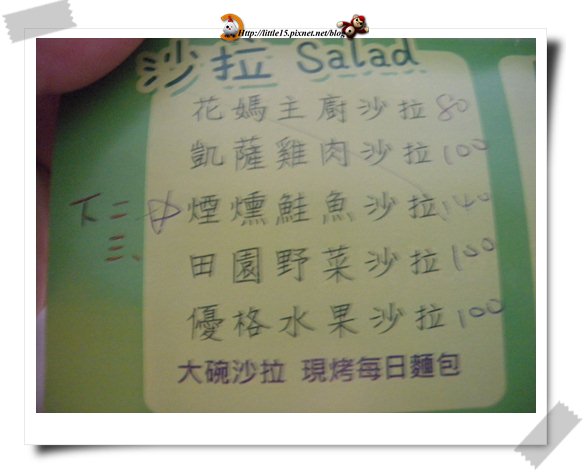 Http://little15.pixnet.net/blog
沙拉 Salad
花媽主廚沙拉 80
凱薩雞肉沙拉 100
煙燻鮭魚沙拉 140
田園野菜沙拉 100
優格水果沙拉 100
下二
三、
大碗沙拉 現烤每日麵包